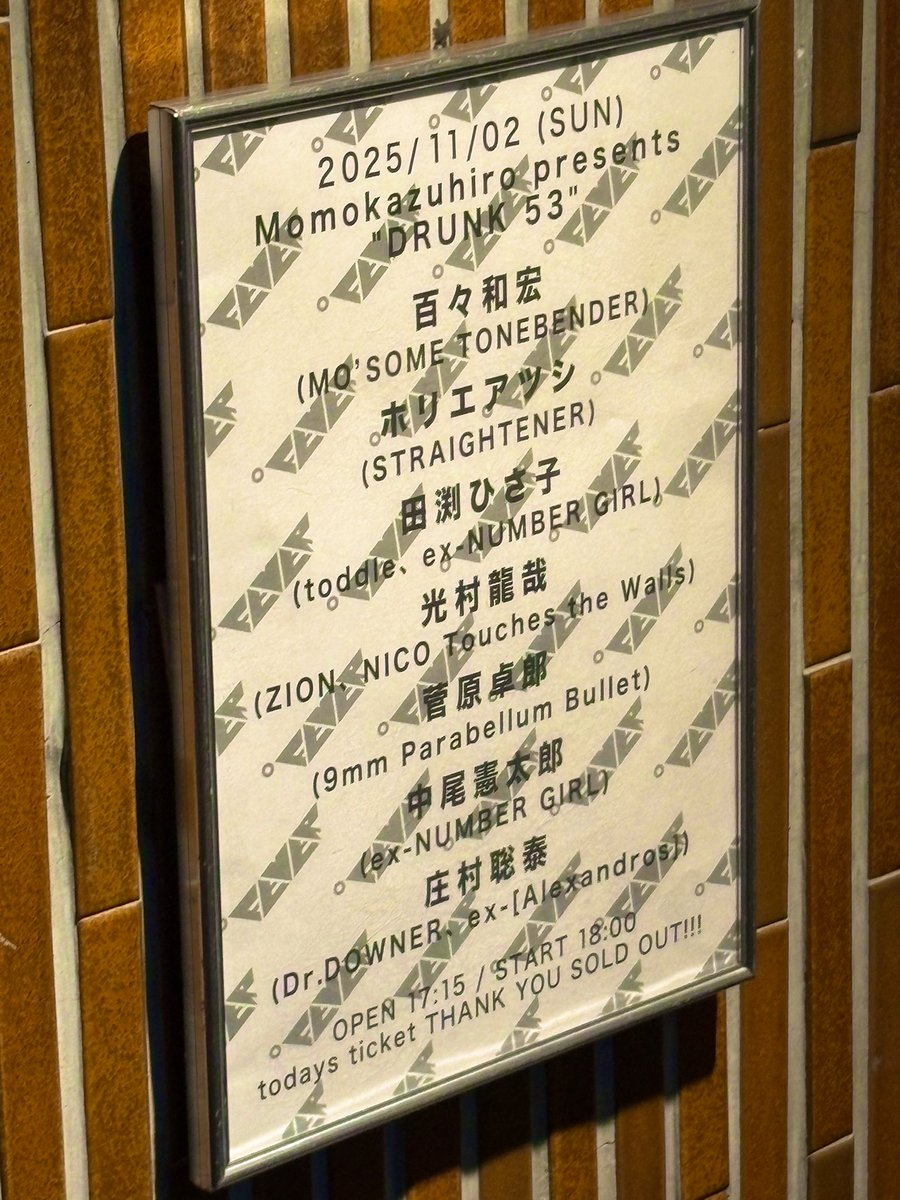 2025/11/02 (SUN)
Momokazuhiro presents
"DRUNK 53"
百々和宏
(MO'SOME TONEBENDER)
ホリエアツシ
(STRAIGHTENER)
田渕ひさ子
(toddle、ex-NUMBER GIRL)
光村龍哉
(ZION、NICO Touches the Walls)
菅原卓郎
(9mm Parabellum Bullet)
中尾憲太郎
(ex-NUMBER GIRL)
庄村聡泰
(Dr.DOWNER、ex-[Alexandros])
OPEN 17:15 / START 18:00
todays ticket THANK YOU SOLD OUT!!!